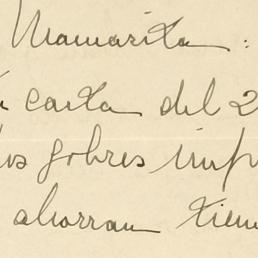 Mamarita :
carta del 2
los sobres imp
ahorran tiem